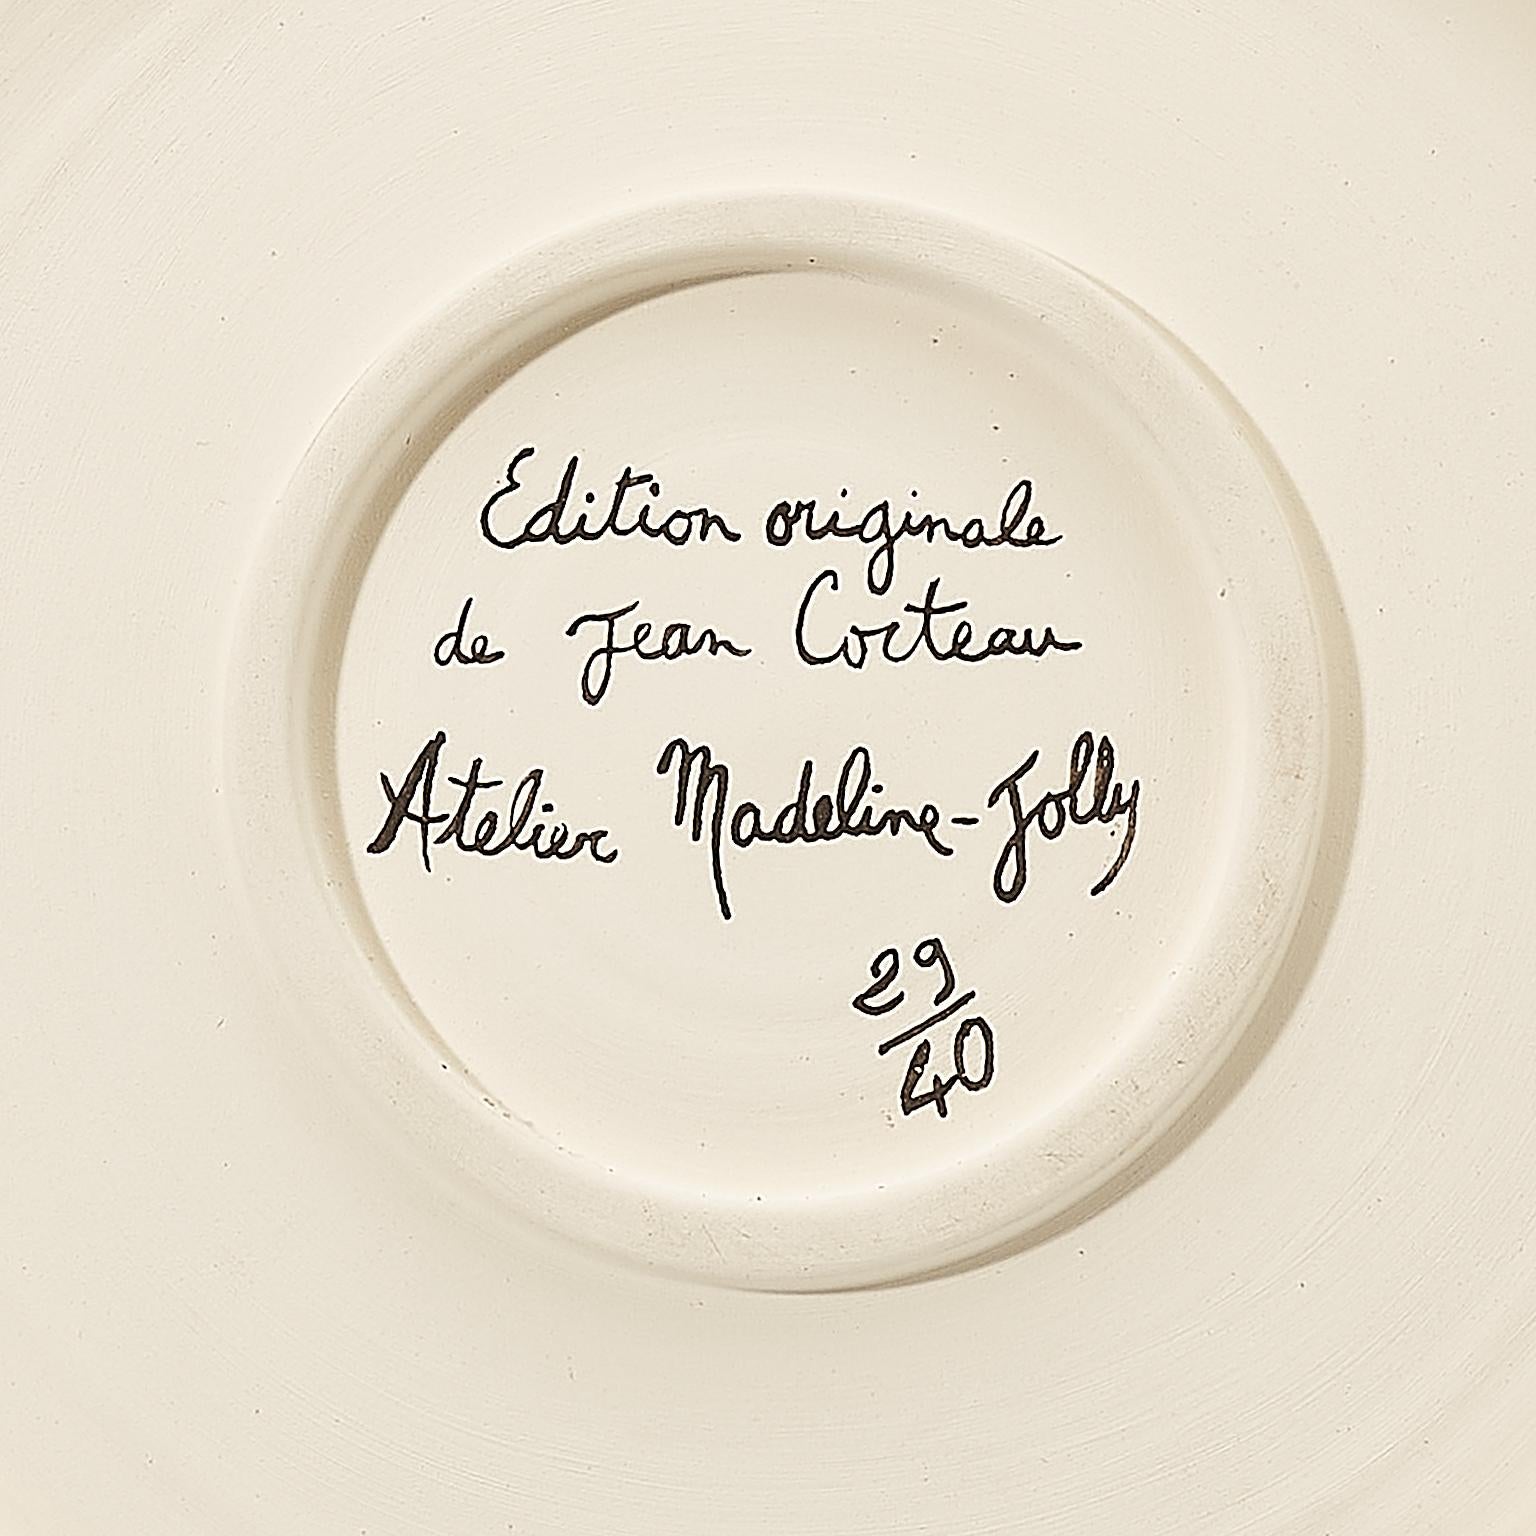 Edition originale
de Jean Cocteau
Atelier Madeline-Jolly
29/40